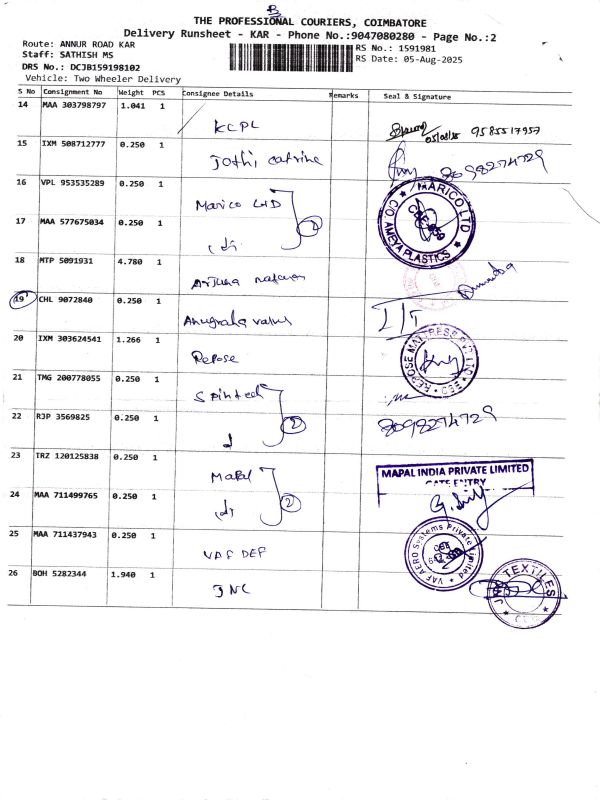 B
THE PROFESSIONAL COURIERS, COIMBATORE
Delivery Runsheet - KAR - Phone No.:9047080280 - Page No.:2
Route: ANNUR ROAD KAR
Staff: SATHISH MS
DRS No.: DCJB159198102
Vehicle: Two Wheeler Delivery
RS No.: 1591981
RS Date: 05-Aug-2025
S No Consignment No Weight PCS Consignee Details Remarks Seal & Signature
14 MAA 303798797 1.041 1 KCPL 05/08/25 9585517957
15 IXM 508712777 0.250 1 Jothi 8098274729
16 VPL 953535289 0.250 1 Marico LTD 2 MARICO LTD C/O. AMEYA PLASTICS
17 MAA 577675034 0.250 1
18 MTP 5091931 4.780 1 Arjuna
19 CHL 9072840 0.250 1 Anugraha
20 IXM 303624541 1.266 1 Repose REPOSE MATTRESS PVT LTD
21 TMG 200778055 0.250 1 Spintech 2
22 RJP 3569825 0.250 1 8098274729
23 TRZ 120125838 0.250 1 Mapal 2 MAPAL INDIA PRIVATE LIMITED
GATE ENTRY
24 MAA 711499765 0.250 1
25 MAA 711437943 0.250 1 VAF DEF VAF AERO Systems Private Limited
26 BOH 5282344 1.940 1 JNC TEXTILES